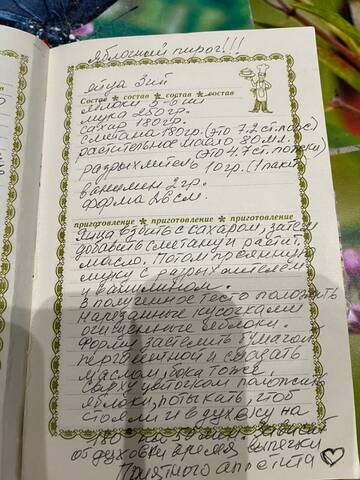 Яблочный пирог!!!
яйца 3 шт
Состав ★ состав ★ состав ★ состав
яблоки 5-6 шт
мука 250гр.
сахар 180гр.
сметана 180гр. (это 7,2 ст. лож)
растительное масло 80мл.
(это 4,7 ст. ложки)
разрыхлитель 10гр. (1 пакет)
ванилин 2гр.
форма 26см.
приготовление ★ приготовление ★ приготовление
Яйца взбить с сахаром, затем
добавить сметану и растит.
масло. Потом просеянную
муку с разрыхлителем
и ванилином.
В полученное тесто положить
нарезанные кусочками
очищенные яблоки.
Форму застелить бумагой
пергаментной и смазать
маслом, бока тоже,
сверху цветочком положить
яблоки, потыкать, чтоб
стояли и в духовку на
180
от духовки время выпечки
Приятного аппетита